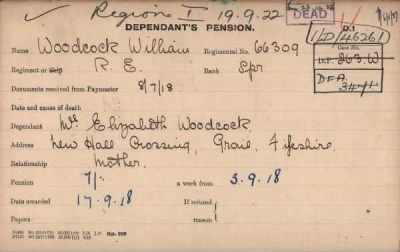 ✓ Region I 19.9.22 DEAD
DEPENDANT'S PENSION. D.1
1/D/46261
Name Woodcock William Regimental No. 66309 Case No.
Regiment or Ship R. E. Rank Spr
Documents received from Paymaster 8/7/18 D.F.A.
Date and cause of death
Dependant Mrs Elizabeth Woodcock.
Address New Hall Crossing, Crail, Fifeshire.
Relationship Mother.
Pension 7/- a week from 3.9.18
Date awarded 17.9.18 If refused
Papers reason